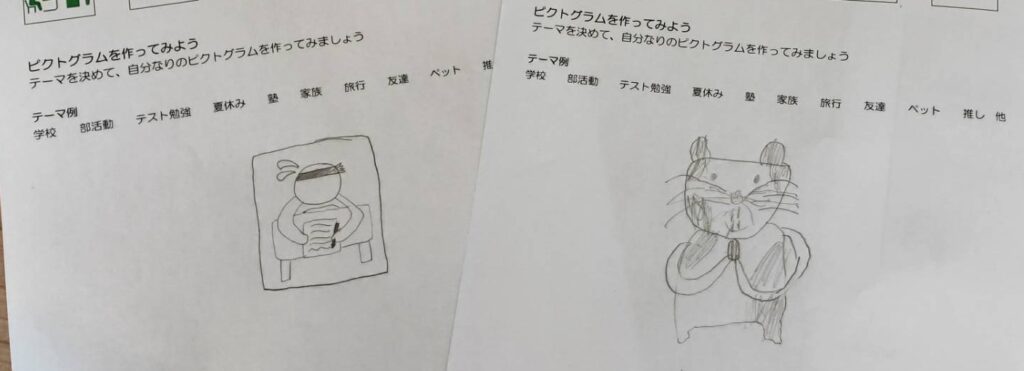 ピクトグラムを作ってみよう
テーマを決めて、自分なりのピクトグラムを作ってみましょう
テーマ例
学校 部活動 テスト勉強 夏休み 塾 家族 旅行 友達 ペット 推
ピクトグラムを作ってみよう
テーマを決めて、自分なりのピクトグラムを作ってみましょう
テーマ例
学校 部活動 テスト勉強 夏休み 塾 家族 旅行 友達 ペット 推し 他